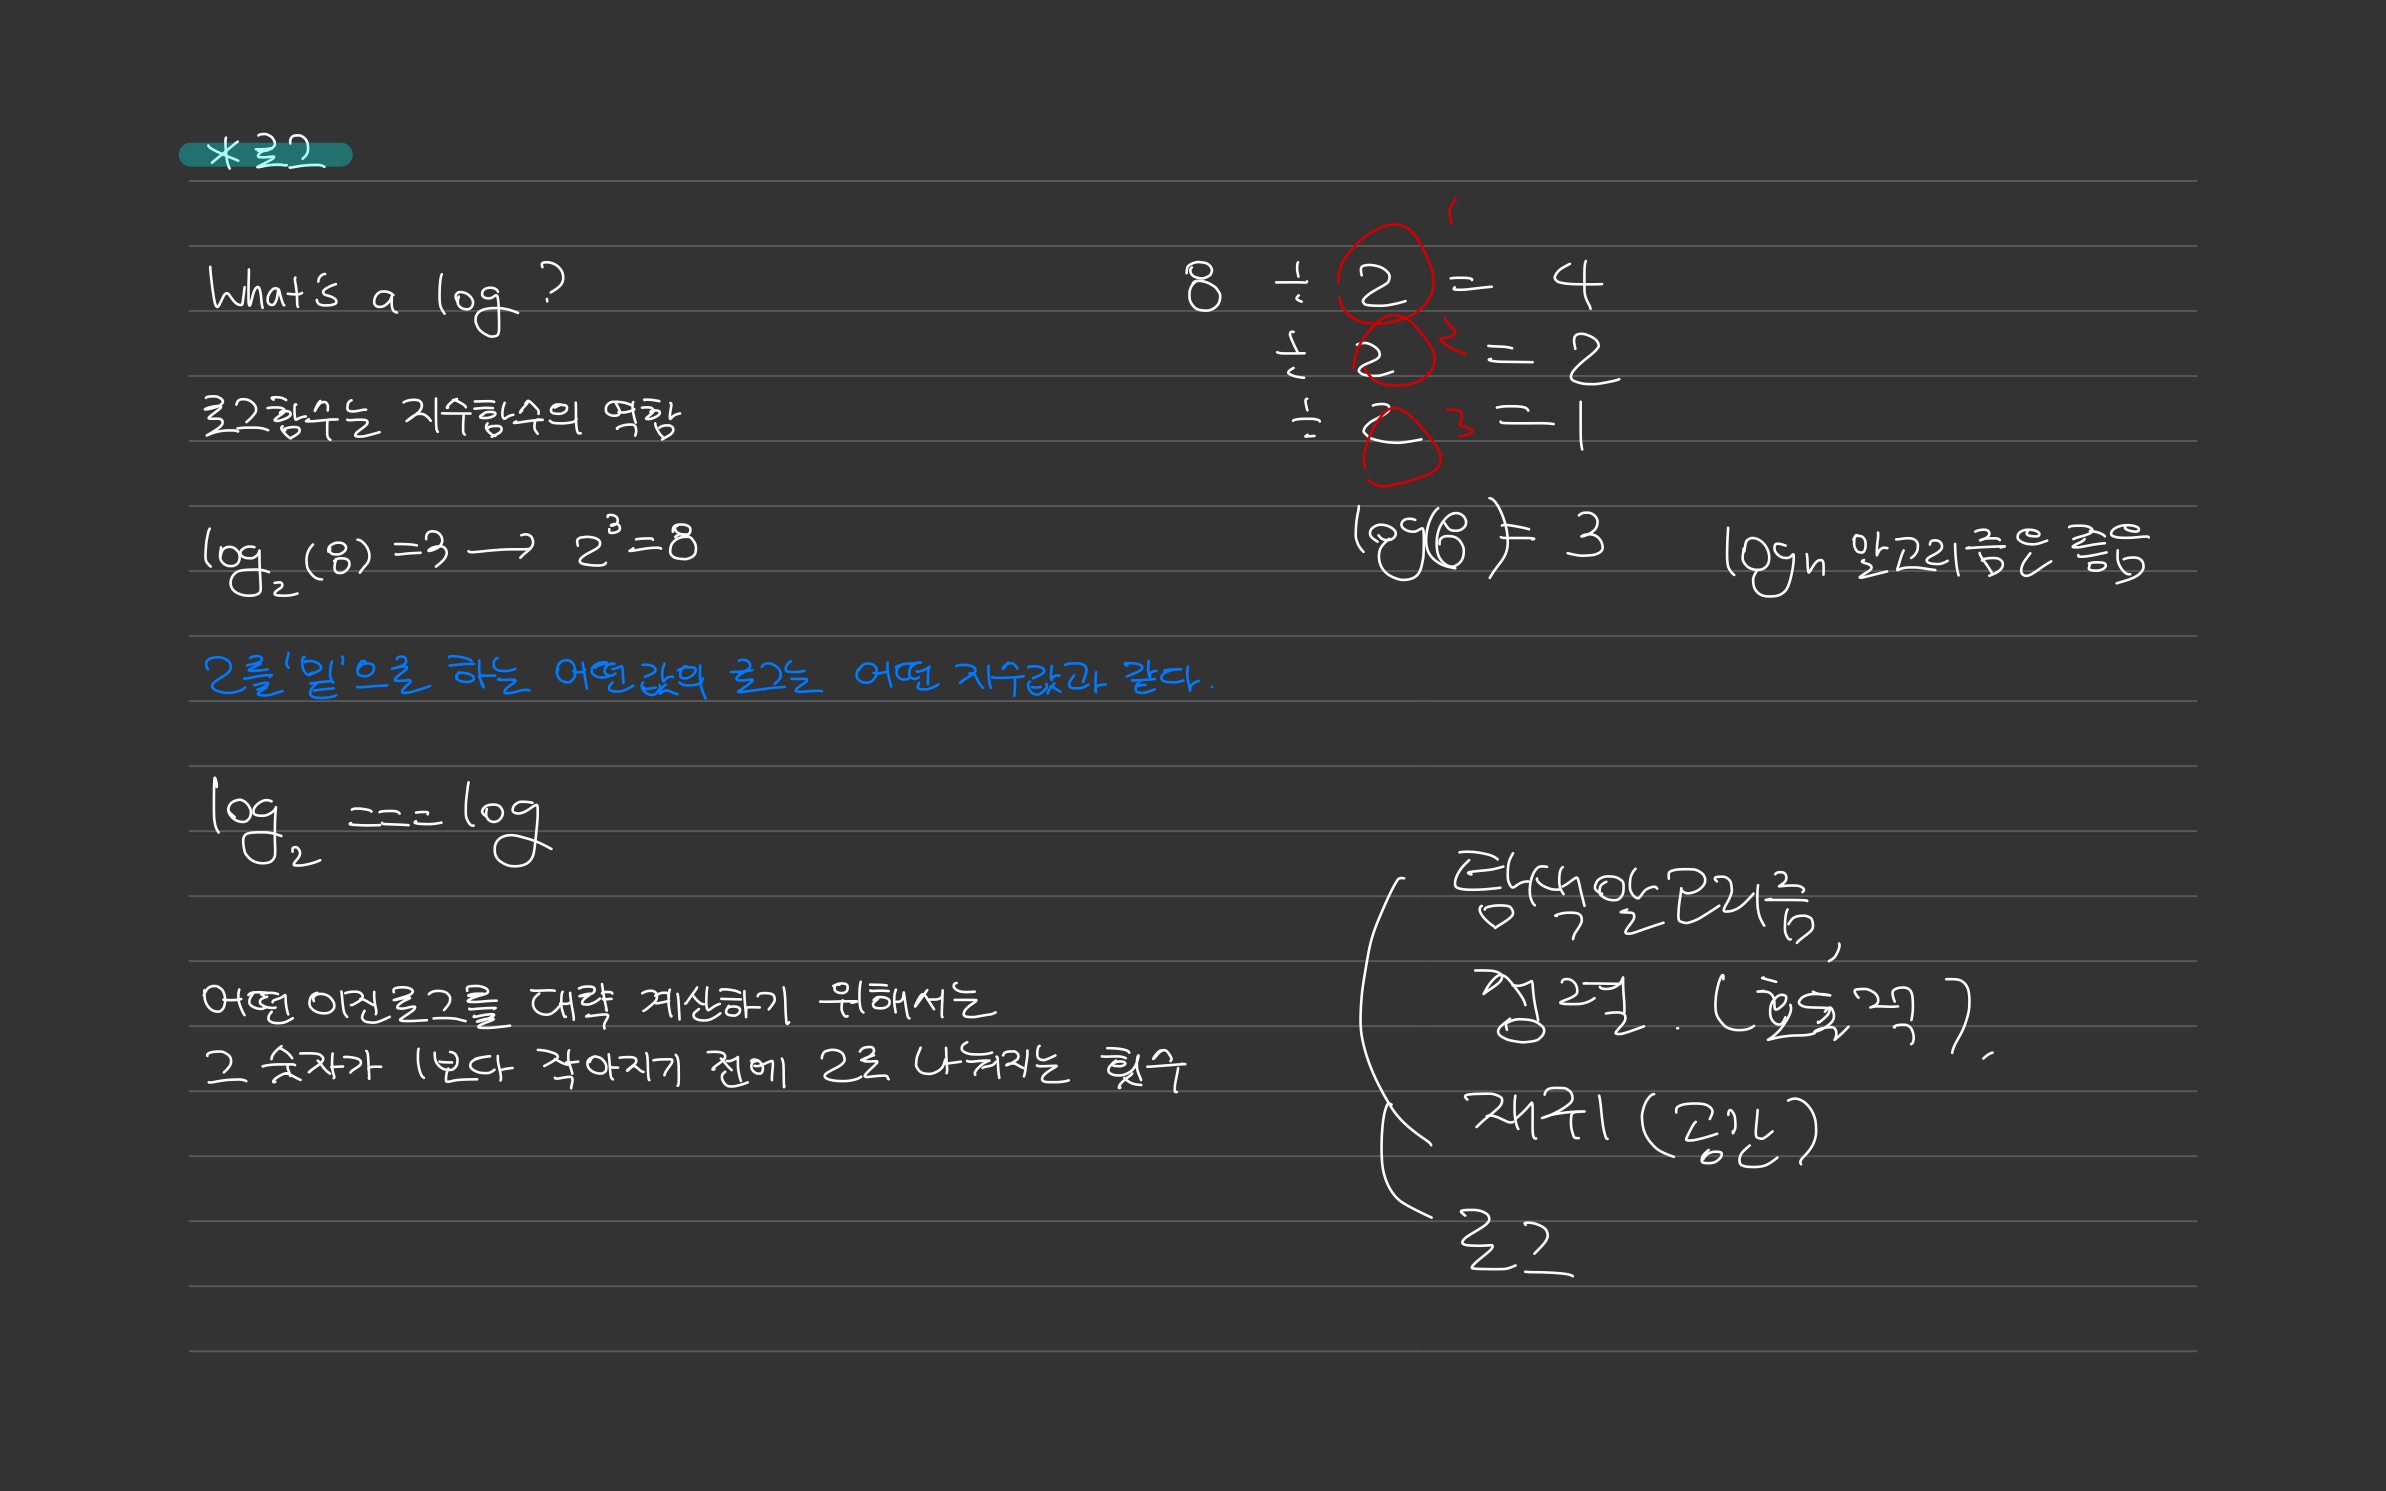 *로그
What's a log?
로그함수는 지수함수의 역함
log₂(8)=3→ 2³=8
2를 '밑'으로 하는 어떤값의 로그는 어떤 지수값과 같다.
log₂ === log
어떤 이진로그를 대략 계산하기 위해서는
그 숫자가 1보다 작아지기 전에 2로 나눠지는 횟수
8 ÷ 2 = 4
1
÷ 2 = 2
2
÷ 2 = 1
3
log(8) = 3
logn 알고리즘은 좋음
탐색알고리즘,
정렬. (효율적).
재귀 (공간)
로그